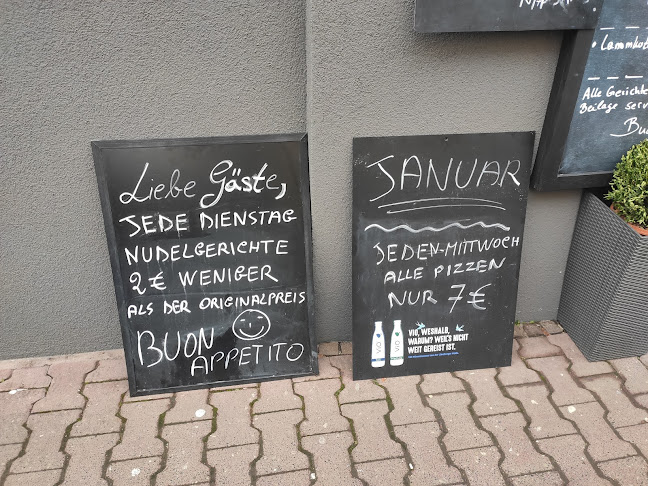 Liebe Gäste,
JEDE DIENSTAG
NUDELGERICHTE
2€ WENIGER
ALS DER ORIGINALPREIS
BUON
APPETITO
JANUAR
JEDEN-MITTWOCH
ALLE PIZZEN
NUR 7€
VIO
VIO
VIO, WESHALB,
WARUM? WEIL'S NICHT
WEIT GEREIST IST.
Alle Gerichte
Beilage